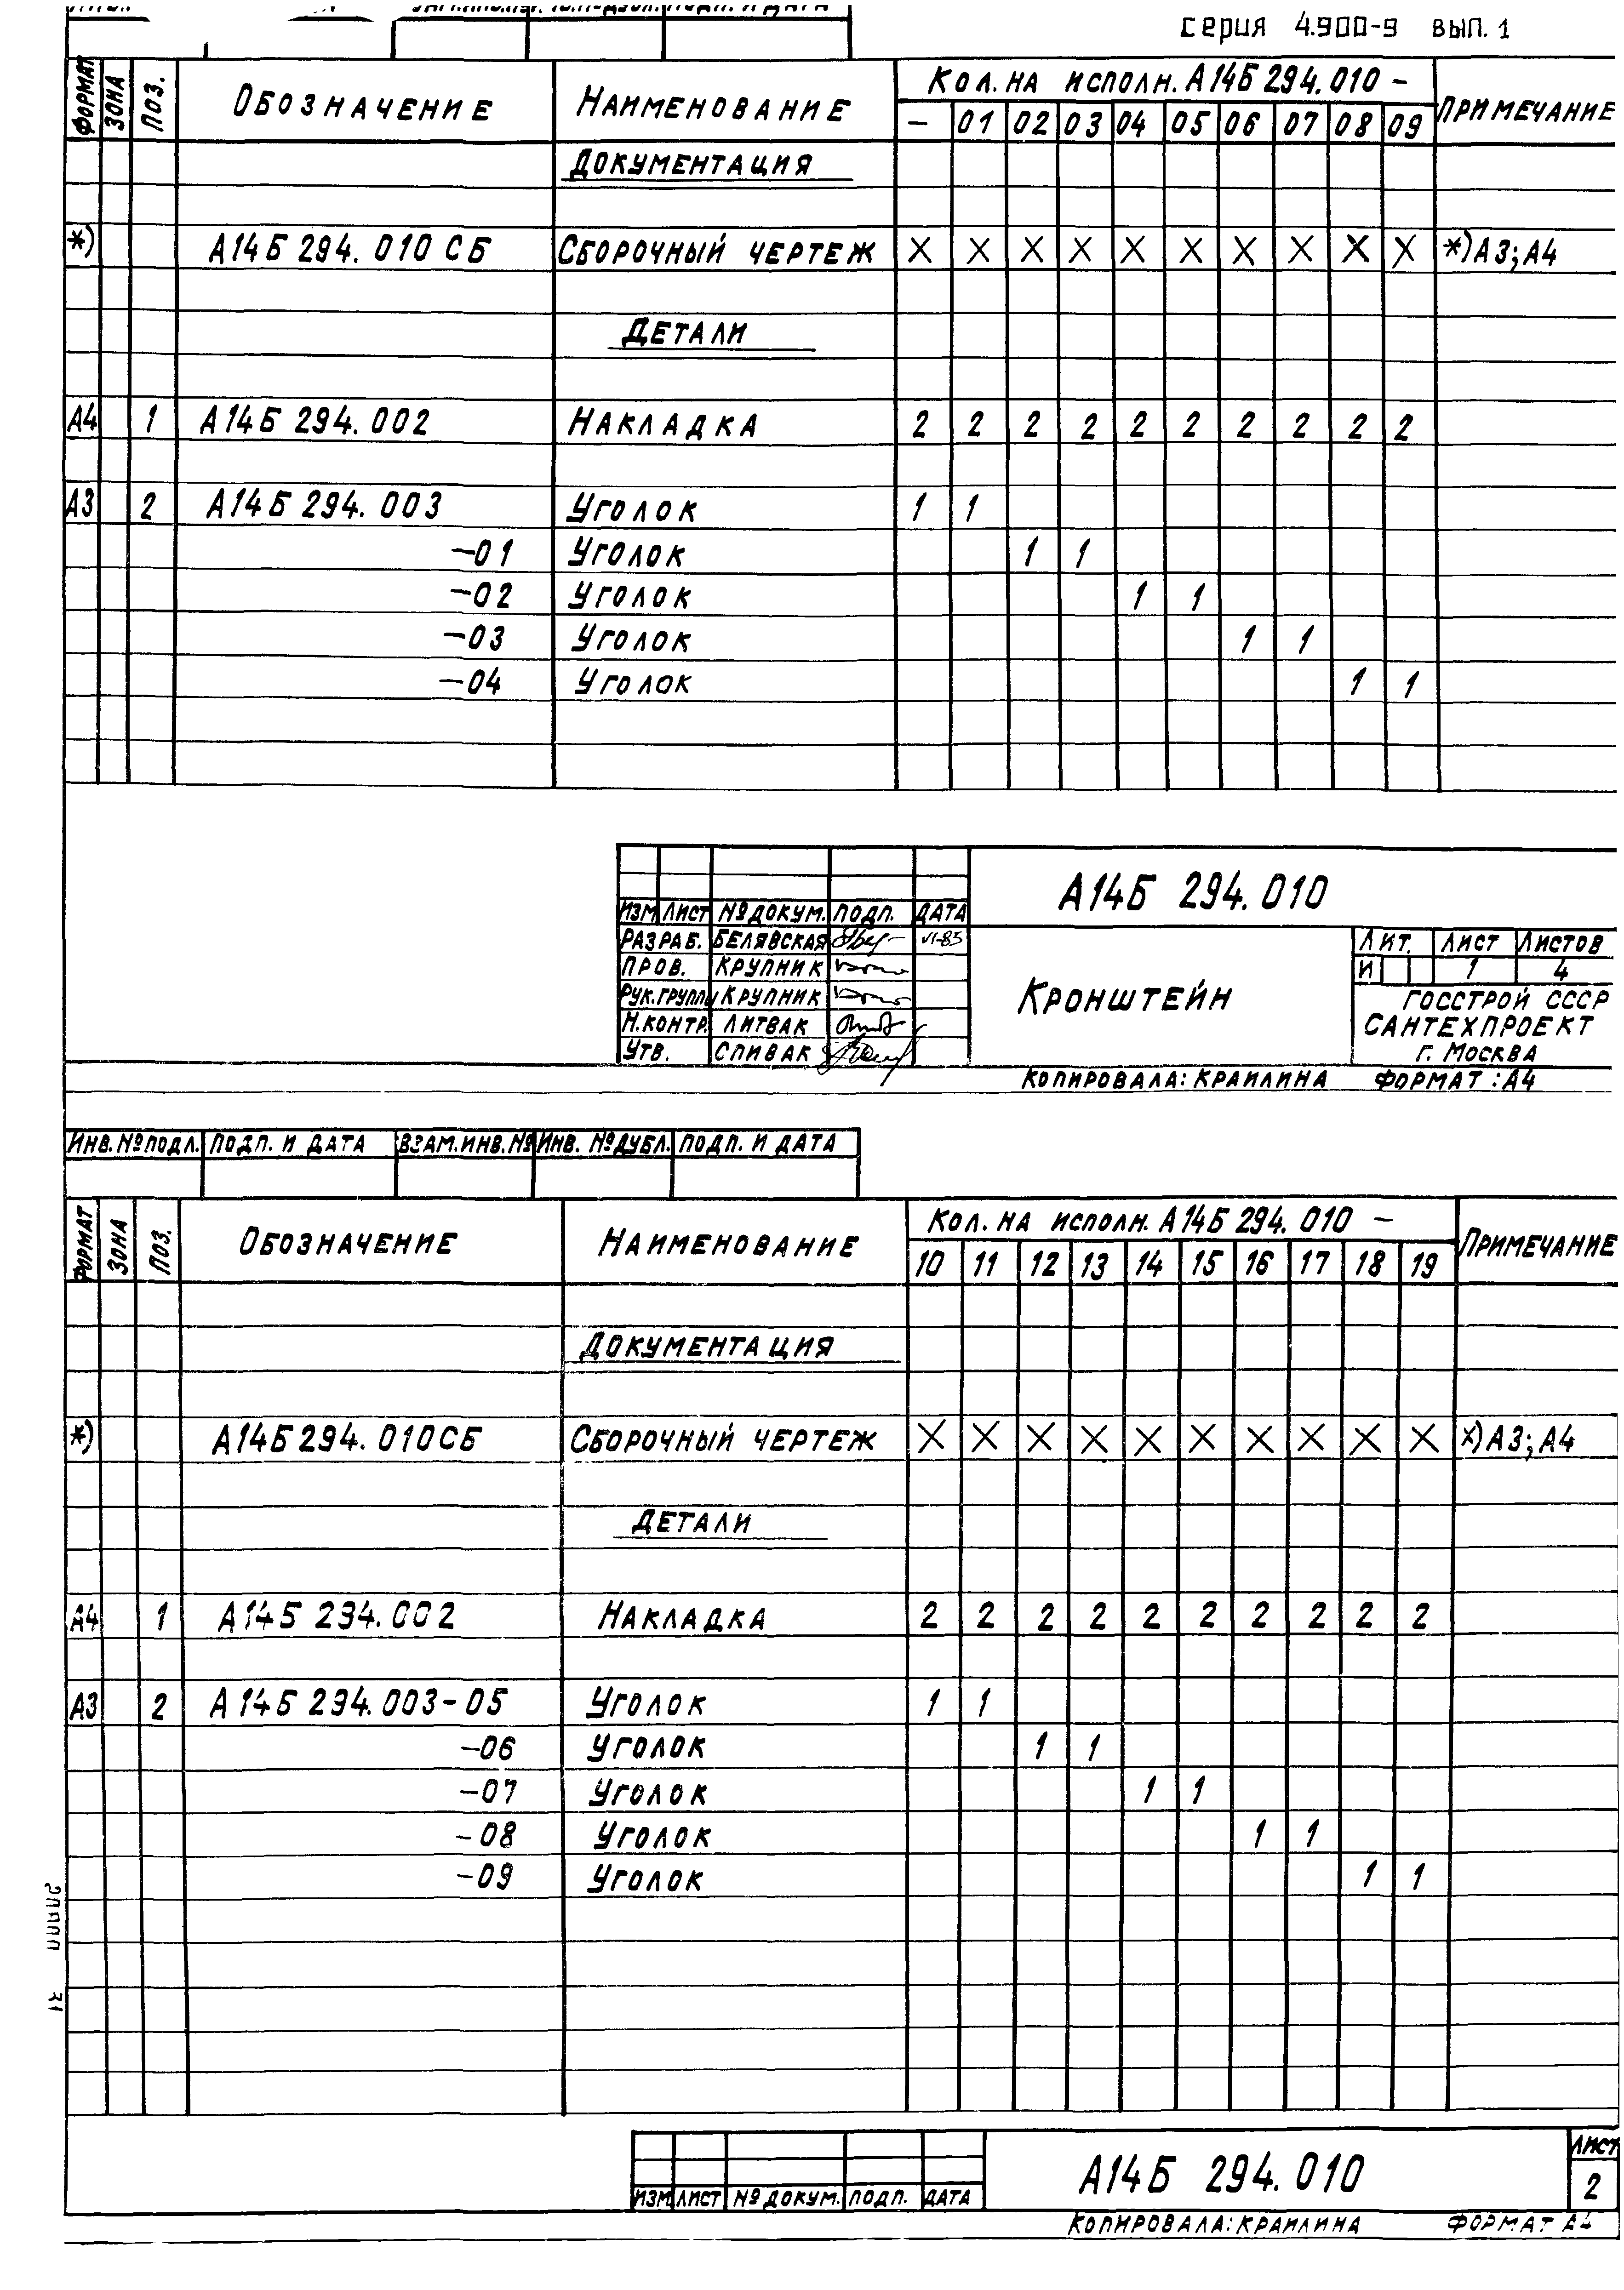 серия 4.900-9 вып. 1
ФОРМАТ ЗОНА ПОЗ. ОБОЗНАЧЕНИЕ НАИМЕНОВАНИЕ КОЛ. НА ИСПОЛН. А14Б 294.010 – ПРИМЕЧАНИЕ
– 01 02 03 04 05 06 07 08 09
ДОКУМЕНТАЦИЯ
*) А14Б 294.010 СБ СБОРОЧНЫЙ ЧЕРТЕЖ X X X X X X X X X X *) А3; А4
ДЕТАЛИ
А4 1 А14Б 294.002 НАКЛАДКА 2 2 2 2 2 2 2 2 2 2
А3 2 А14Б 294.003 УГОЛОК 1 1
–01 УГОЛОК 1 1
–02 УГОЛОК 1 1
–03 УГОЛОК 1 1
–04 УГОЛОК 1 1
А14Б 294.010
ИЗМ ЛИСТ № ДОКУМ. ПОДП. ДАТА
РАЗРАБ. БЕЛЯВСКАЯ VI-85
ПРОВ. КРУПНИК
РУК.ГРУППЫ КРУПНИК
Н.КОНТР. ЛИТВАК
УТВ. СПИВАК
КРОНШТЕЙН
ЛИТ. ЛИСТ ЛИСТОВ
И 1 4
ГОССТРОЙ СССР
САНТЕХПРОЕКТ
г. МОСКВА
КОПИРОВАЛА: КРАИЛИНА ФОРМАТ: А4
ИНВ. № ПОДЛ. ПОДП. И ДАТА ВЗАМ. ИНВ. № ИНВ. № ДУБЛ. ПОДП. И ДАТА
ФОРМАТ ЗОНА ПОЗ. ОБОЗНАЧЕНИЕ НАИМЕНОВАНИЕ КОЛ. НА ИСПОЛН. А14Б 294.010 – ПРИМЕЧАНИЕ
10 11 12 13 14 15 16 17 18 19
ДОКУМЕНТАЦИЯ
*) А14Б 294.010СБ СБОРОЧНЫЙ ЧЕРТЕЖ X X X X X X X X X X х) А3; А4
ДЕТАЛИ
А4 1 А14Б 294.002 НАКЛАДКА 2 2 2 2 2 2 2 2 2 2
А3 2 А14Б 294.003-05 УГОЛОК 1 1
–06 УГОЛОК 1 1
–07 УГОЛОК 1 1
–08 УГОЛОК 1 1
–09 УГОЛОК 1 1
А14Б 294.010
ЛИСТ
2
ИЗМ ЛИСТ № ДОКУМ. ПОДП. ДАТА
КОПИРОВАЛА: КРАИЛИНА ФОРМАТ А4